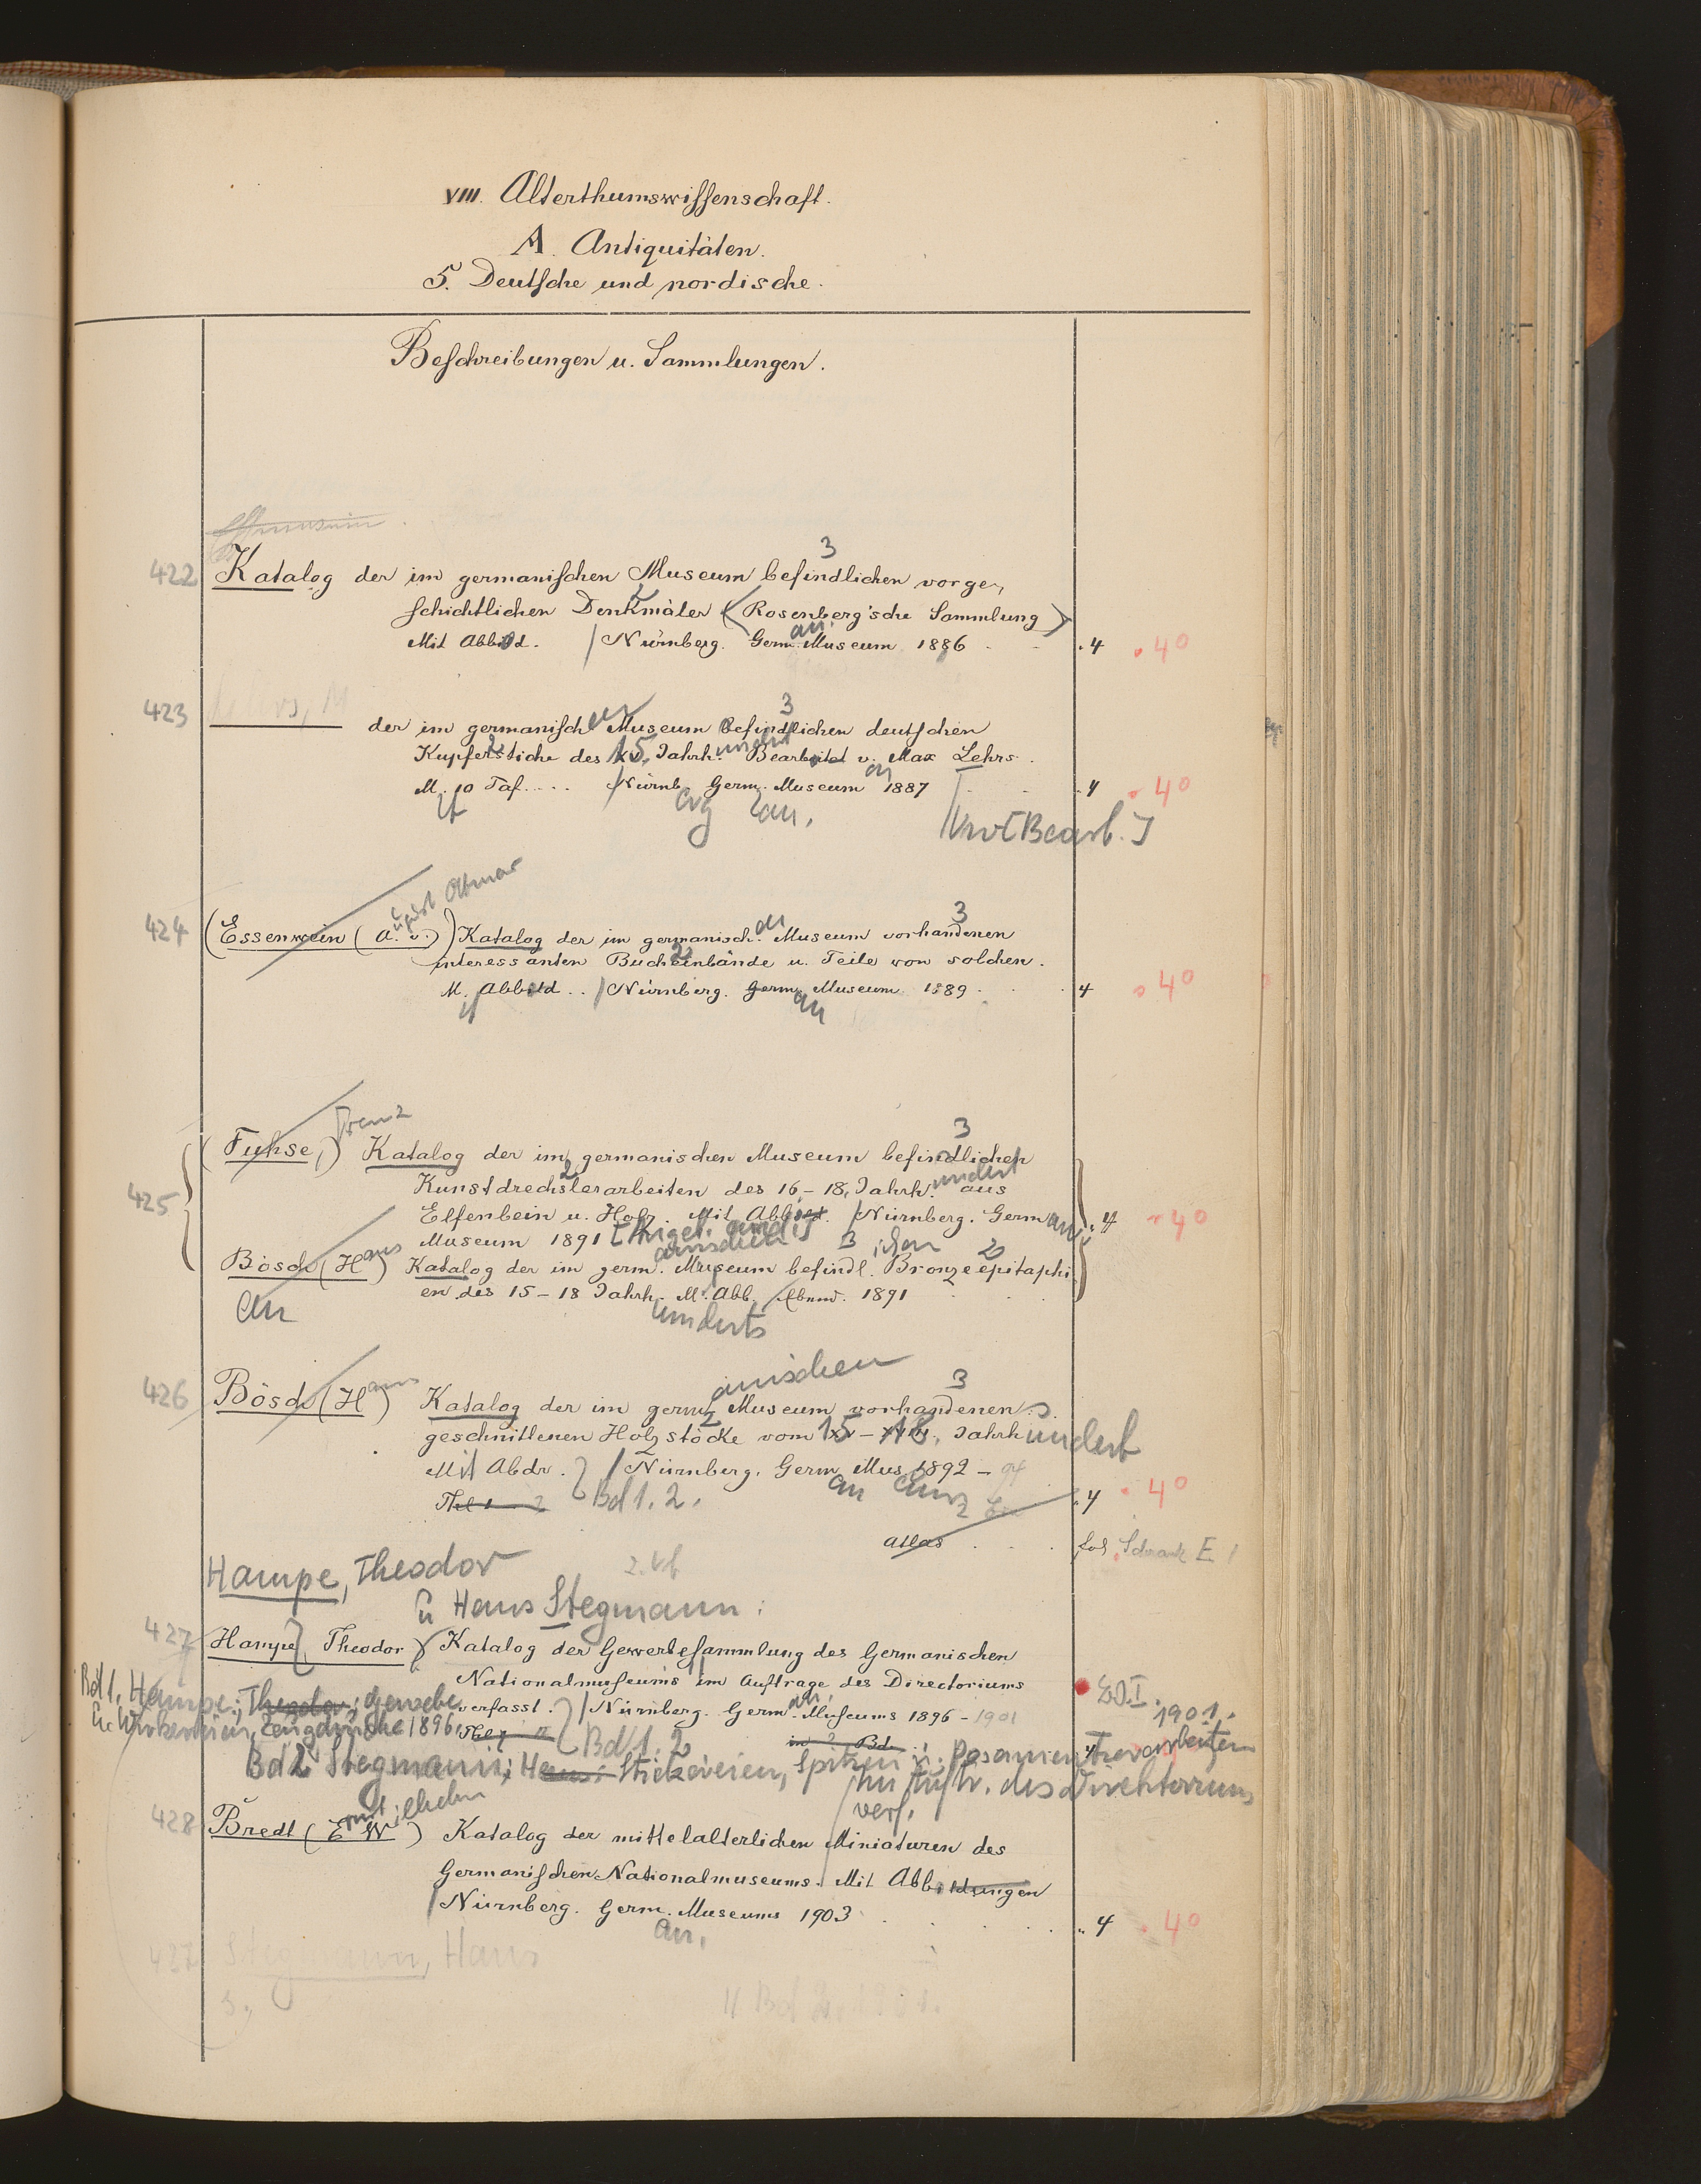 VIII. Alterthumswissenschaft.
A. Antiquitäten.
5. Deutsche und nordische.
Beschreibungen u. Sammlungen.
3
422 Katalog der im germanischen Museum befindlichen vorge-
schichtlichen Denkmäler (Rosenberg'sche Sammlung)
Mit Abbild. / Nürnberg. Germ. an. Museum 1886 . 4 40
423 Lehrs, M
3
der im germanischen Museum befindlichen deutschen
Kupferstiche des 15. Jahrhundert Bearbeitet v. Max Lehrs.
M. 10 Taf. / Nürnb. Germ. Museum 1887 . 4 40
an, [Bearb.]
August Ottmar
3
424 (Essenwein (A. v.)) Katalog der im germanisch. en Museum vorhandenen
2
interessanten Bucheinbände u. Teile von solchen.
M. Abbild. / Nürnberg. Germ. Museum 1889 . 4 40
it an
Franz
3
425 (Fuhse,) Katalog der im germanischen Museum befindlichen
2
Kunstdrechslerarbeiten des 16.-18. Jahrhundert aus
Elfenbein u. Holz. Mit Abbild. / Nürnberg. German. 4 40
Museum 1891
anischen 3 ichen 2
Bösch (Hans) Katalog der im germ. Museum befindl. Bronzeepitaphi
en des 15-18 Jahrh. M. Abb. Ebend. 1891
an underts
anischen 3
426 Bösch (Hans) Katalog der im germ. Museum vorhandenen
2
geschnittenen Holzstöcke vom 15-18. Jahrhundert
Mit Abdr. / Nürnberg. Germ. Mus. 1892 -
Bd 1. 2. an 4 40
Atlas . . . fol Schrank E 1
Hampe, Theodor
u Hans Stegmann:
427 Hampe, Theodor Katalog der Gewebesammlung des Germanischen
Nationalmuseums im Auftrage des Directoriums
Bd 1. Hampe, Theodor: Gewebe verfasst. / Nürnberg. Germ. an. Museums 1896 - 1901
u. Wirkereien, Zeugdrucke 1896. Bd 1. 2 1901.
Bd 2 Stegmann, Hans: Stickereien, Spitzen u. Posamentierarbeiten
Im Auftr. des Direktoriums
verf.
rnst ilhelm
428 Bredt (E W) Katalog der mittelalterlichen Miniaturen des
Germanischen Nationalmuseums. Mit Abbildungen
/ Nürnberg. Germ. Museums 1903 . 4 40
an.
427 Stegmann, Hans
s.
Bd 2. 1901.